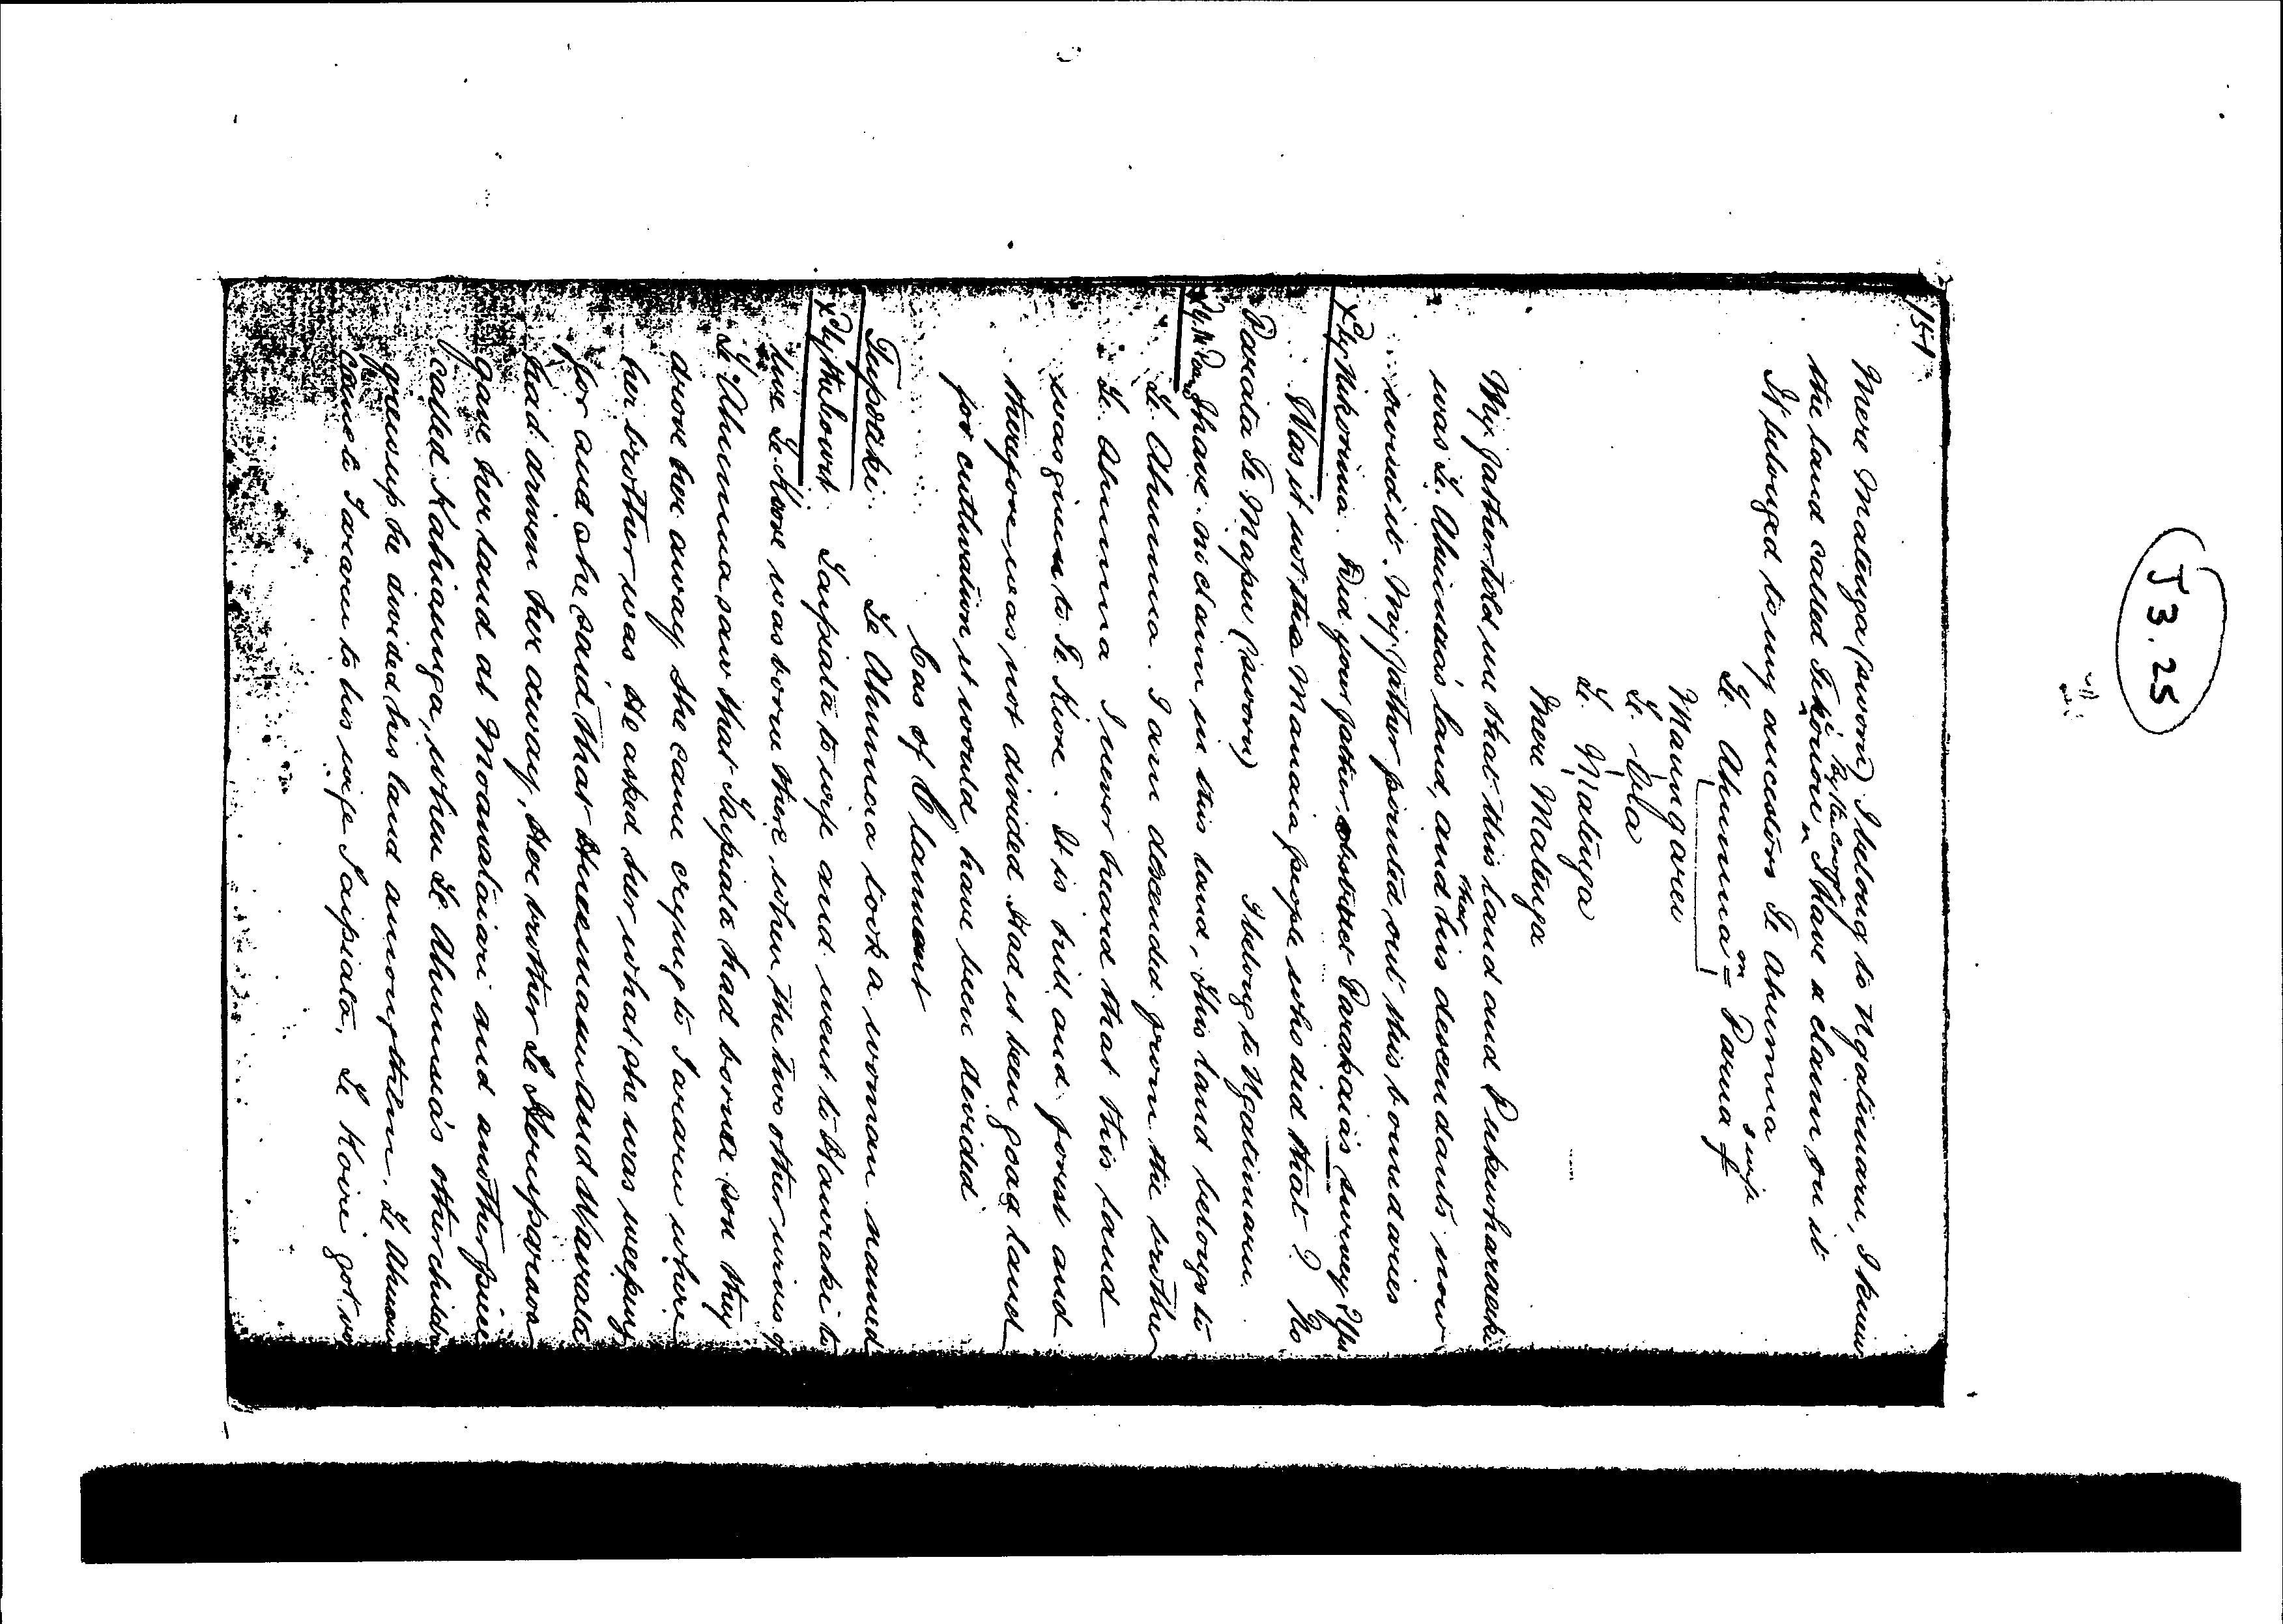 J3.25
154
Mere Matenga (sworn) I belong to Ngatimaru, I know
the land called Te Kouou by the Court I have a claim on it
It belonged to my ancestor Te Ahumua
Te Ahumua m = Parua f
2 wife
Maungarei
Te Ola
Te Matenga
Mere Matenga
My father told me that this land and Pukewharareki
was Te Ahumua's land, and that his descendants now
owned it. My father pointed out this boundaries
X by Nikorima. Did your father obstruct Parakaia's survey? Yes
Was it not the Manaia people who did that? No
Parata Te Mapu (sworn) I belong to Ngatimaru
I have no claim in this land, this land belongs to
Te Ahumua. I am descended from the brother
Te Ahumua I never heard that this land
was given to Te Kiore. It is hill and forest and
therefore was not divided. Had it been good land
for cultivation it would have been divided
Cas of Claimant
Tupoeki Te Ahumua took a woman named
X by the Court Taipiata to wife and went to Hauraki to
live Te Koove was born there when the two other wives of
Te Ahumua saw that Taipiata had born a son they
drove her away she came crying to Tararu where
her brother was He asked her what she was weeping
for and she said that Hinenamu and Wairata
had driven her away. Her brother Te Aruparoa
gave her land at Moanataiari and another piece
called Kahianga, when Te Ahumua's other children
grew up he divided his land amongst them. Te Ahumua
came to Tararu to his wife Taipiata. Te Koire got no